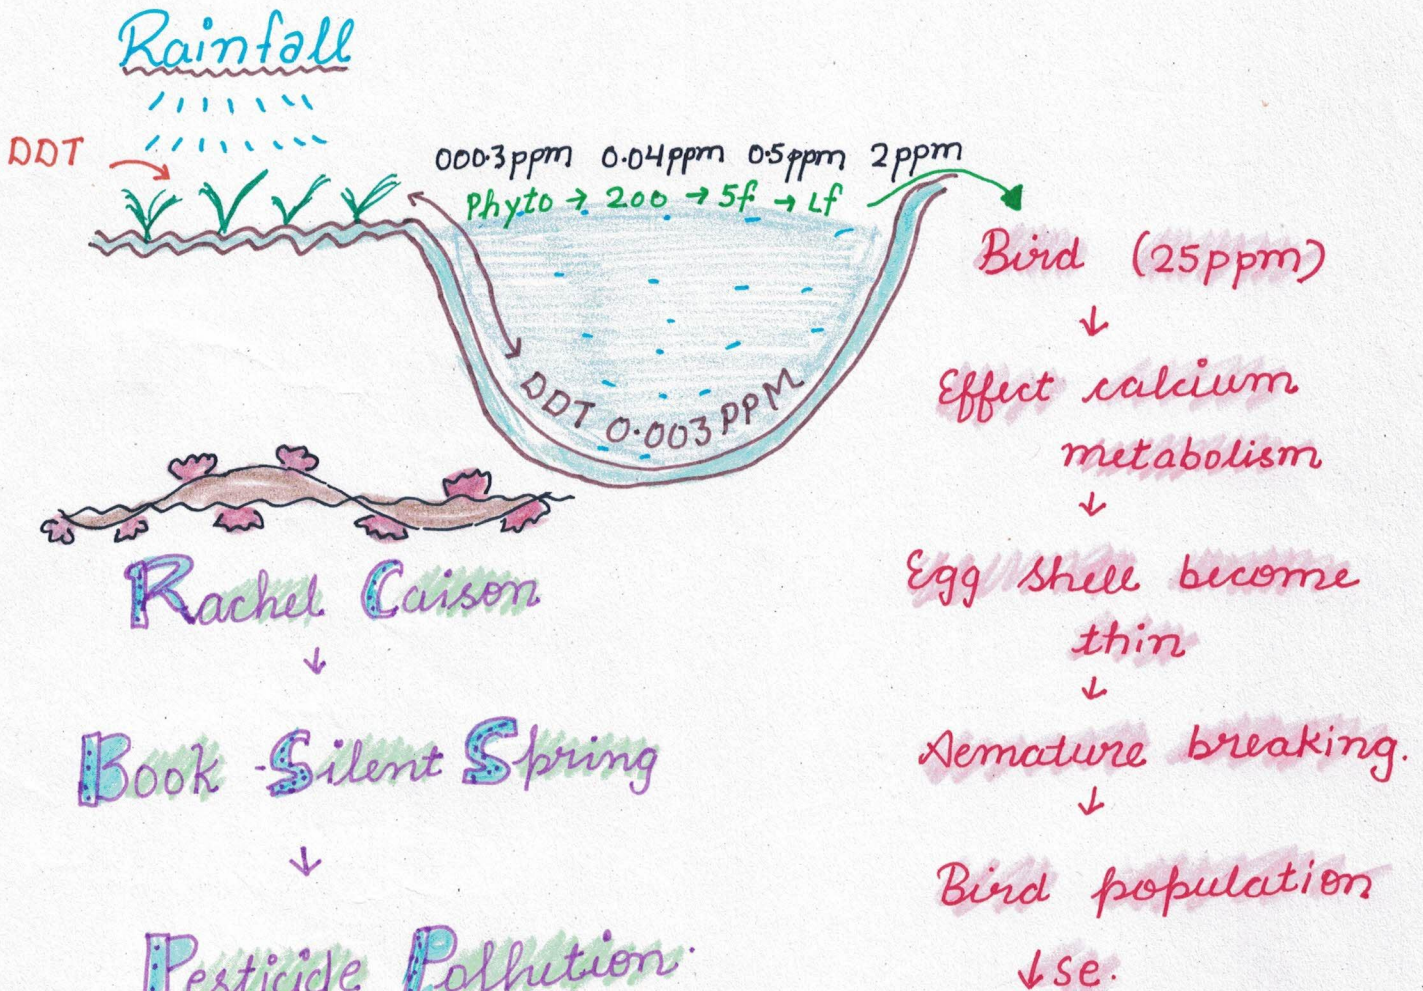 Rainfall
DDT
000.3ppm 0.04ppm 0.5ppm 2ppm
Phyto → Zoo → Sf → Lf
DDT 0.003 PPM
Bird (25ppm)
↓
Effect calcium
metabolism
↓
Egg shell become
thin
↓
Aemature breaking.
↓
Bird population
↓se.
Rachel Caison
↓
Book - Silent Spring
↓
Pesticide Pollution.